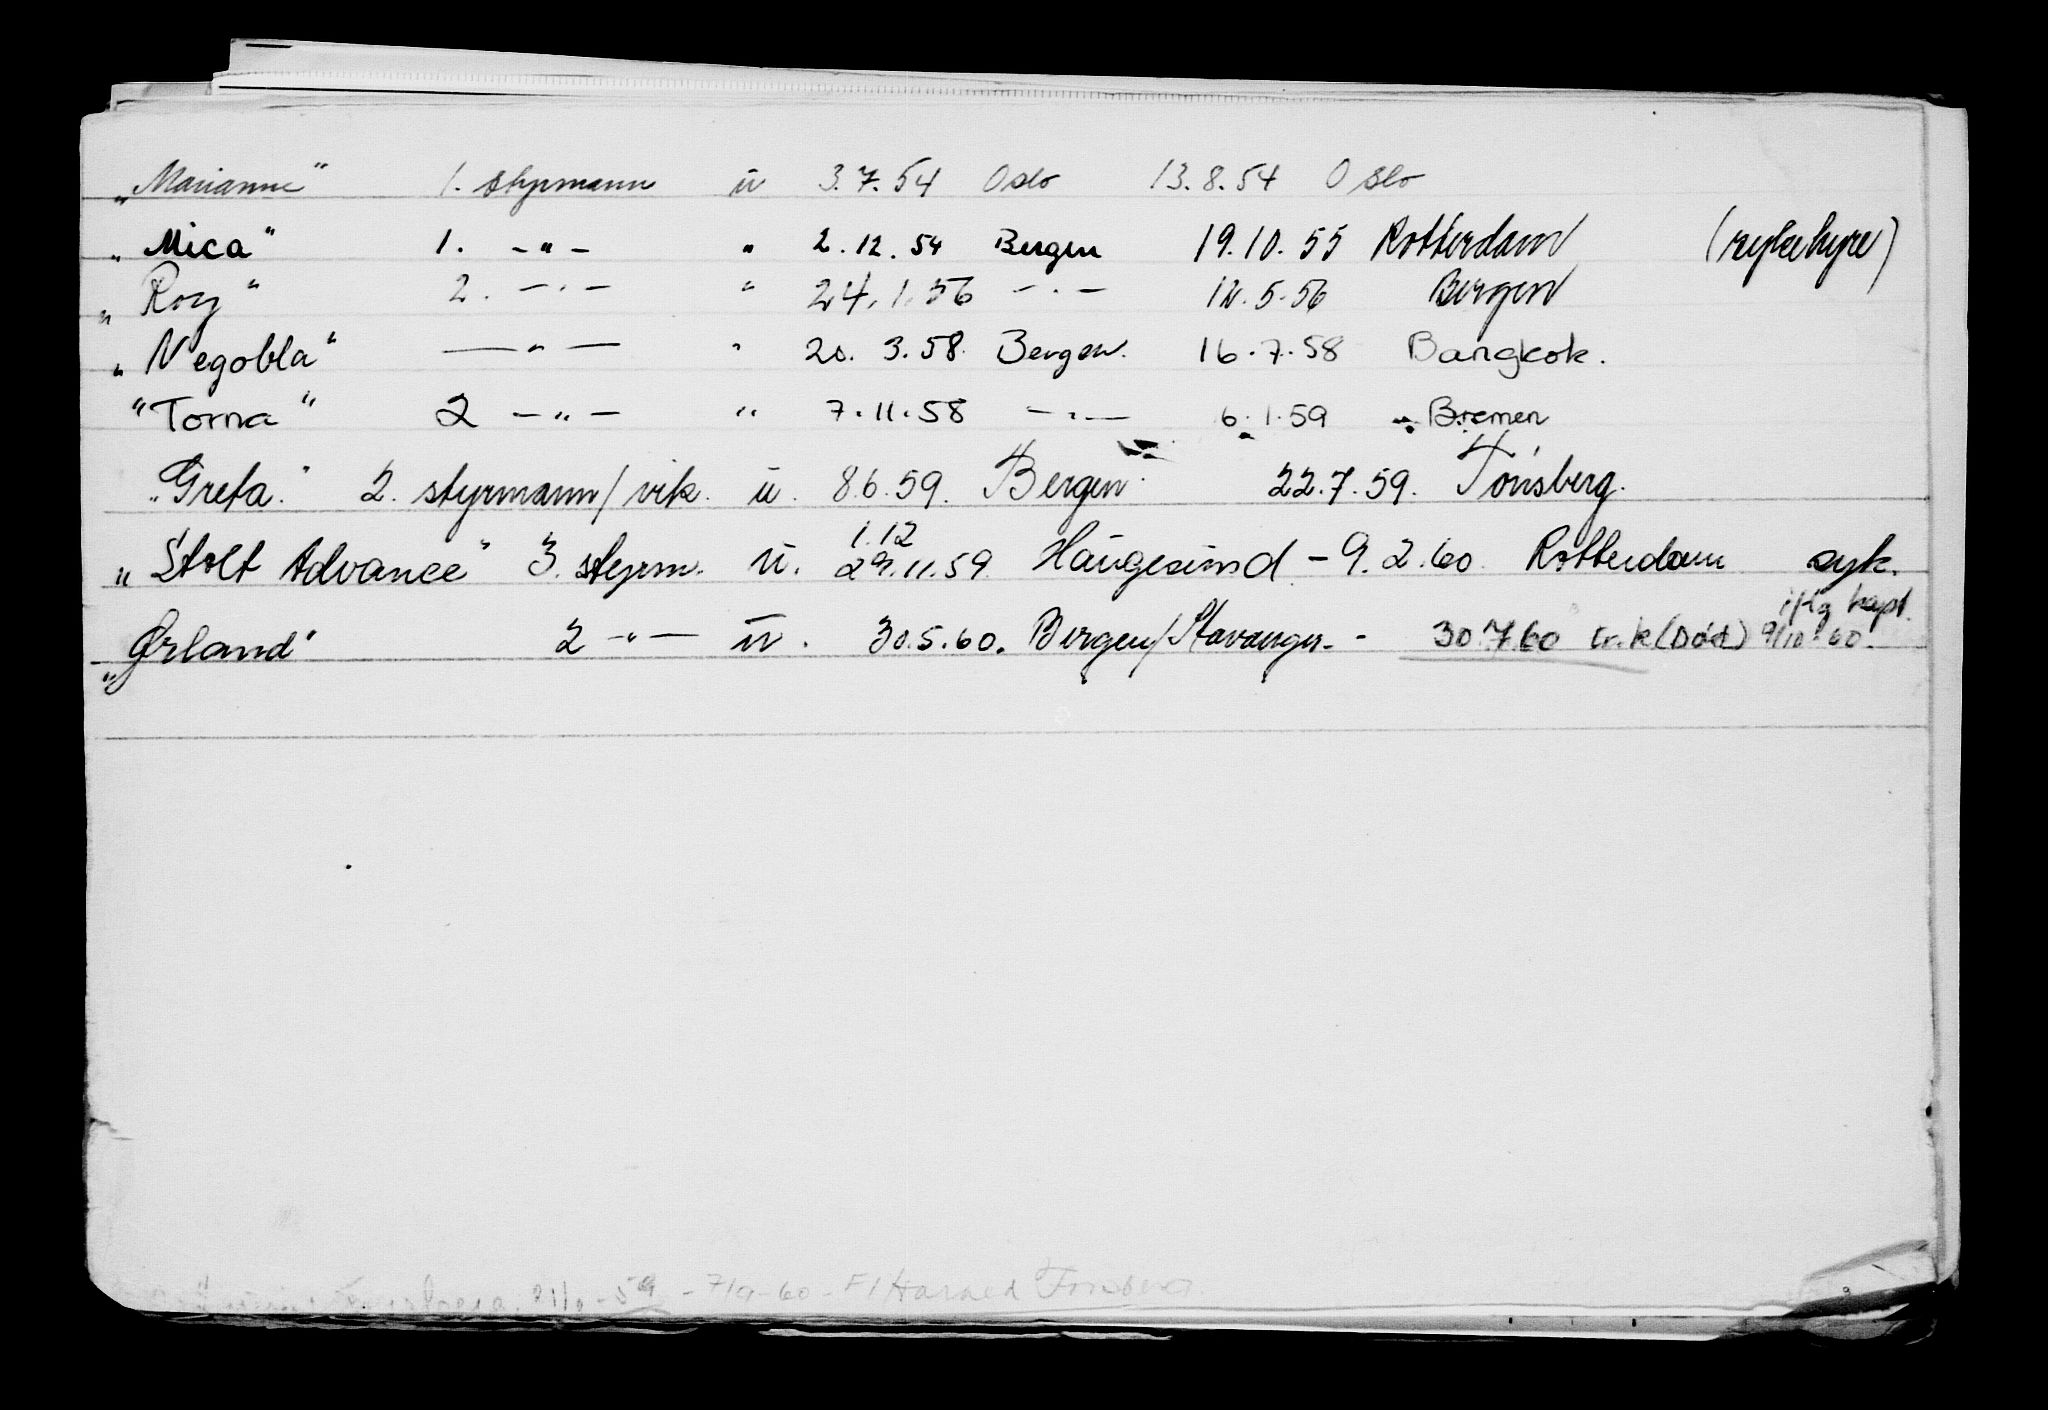 „Marianne" 1. styrmann u 3.7.54 Oslo 13.8.54 Oslo
„Mica" 1. -"- " 2.12.54 Bergen 19.10.55 Rotterdam (sykehyre)
„Roy" 2. -"- " 24.1.56 -"- 12.5.56 Bergen
„Negobla" -"- " 20.3.58. Bergen. 16.7.58 Bangkok.
"Torna" 2 -"- " 7.11.58 -"- 6.1.59 Bremen
„Greta." 2. styrmann/vik. u. 8.6.59. Bergen 22.7.59. Tönsberg.
1.12
„Stolt Advance" 3. styrm. u. 29.11.59. Haugesund - 9.2.60. Rotterdam syk.
kapt.
„Ørland" 2 -"- u. 30.5.60. Bergen/Stavanger - 30.7.60 tr.k (Død) 9/10-60.
- 7/9-60 - F/ Harald